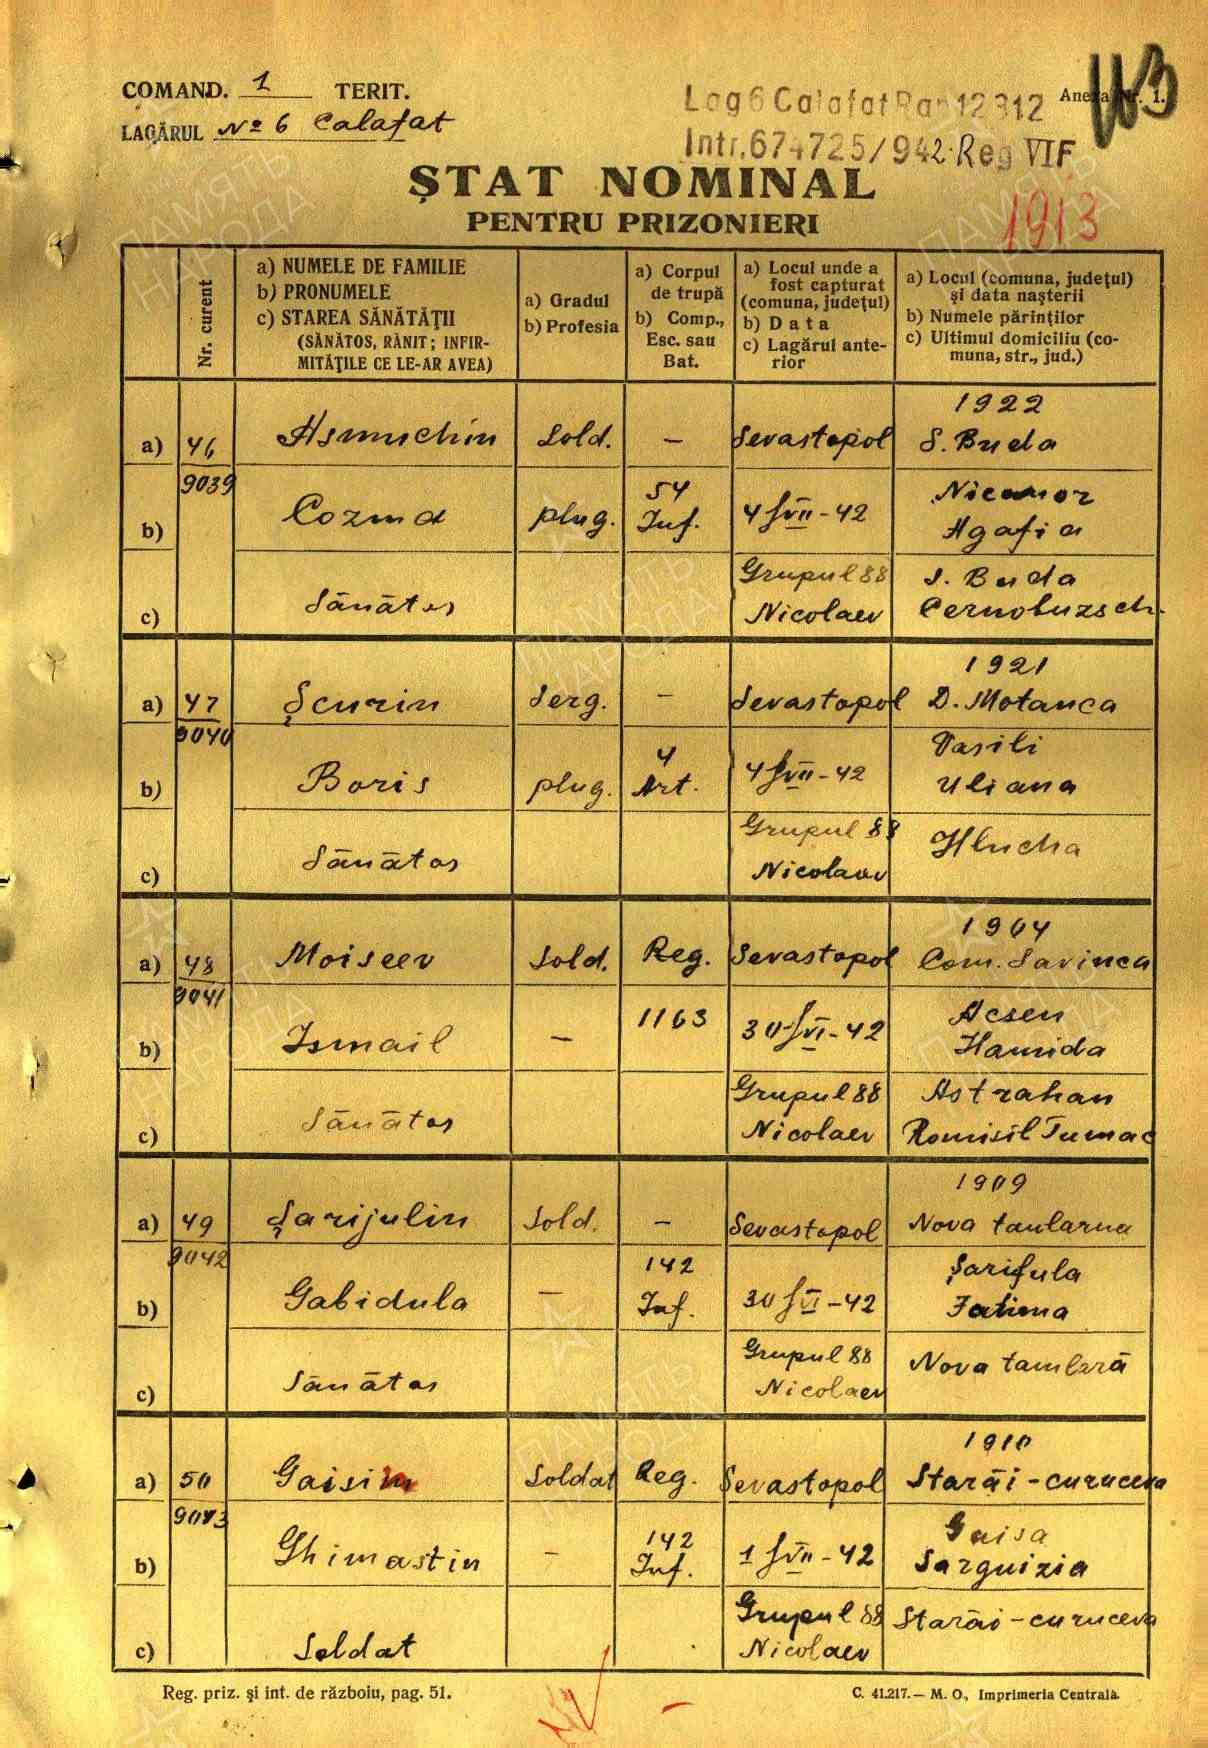 COMAND. 1 TERIT.
LAGĂRUL No 6 Calafat
Lag 6 Calafat Rap 12312
Anexa Nr. 1.
113
Intr. 674725/942 Reg VIF
ȘTAT NOMINAL
PENTRU PRIZONIERI
1913
Nr. curent
a) NUMELE DE FAMILIE
b) PRONUMELE
c) STAREA SĂNĂTĂȚII
(SĂNĂTOS, RĂNIT; INFIR-
MITĂȚILE CE LE-AR AVEA)
a) Gradul
b) Profesia
a) Corpul
de trupă
b) Comp.,
Esc. sau
Bat.
a) Locul unde a
fost capturat
(comuna, județul)
b) Data
c) Lagărul ante-
rior
a) Locul (comuna, județul)
și data nașterii
b) Numele părinților
c) Ultimul domiciliu (co-
muna, str., jud.)
1922
a) 46 Asmuchin Sold. — Sevastopol S. Buda
9039
b) Cozma plug. 54 Inf. 4/VII-42 Nicanor
Agafia
c) Sănătos Grupul 88 Nicolaev S. Buda
Cernobuzsch.
1921
a) 47 Șcurin Serg. — Sevastopol D. Motanca
9040
b) Boris plug. 4 Art. 4/VII-42 Vasili
Uliana
c) Sănătos Grupul 88 Nicolaev Hlucha
1904
a) 48 Moiseev Sold. Reg. Sevastopol Com. Savinca
9041
b) Ismail — 1163 30/VI-42 Acsen
Hamida
c) Sănătos Grupul 88 Nicolaev Astrahan
Romisil Tumac
1909
a) 49 Șarijulin Sold. — Sevastopol Nova taularna
9042
b) Gabidula — 142 Inf. 30/VI-42 Șarifula
Fatima
c) Sănătos Grupul 88 Nicolaev Nova
1910
a) 50 Gaisin Soldat Reg. Sevastopol Starăi-curuceva
9043
b) Ghimastin — 142 Inf. 1/VII-42 Gaisa
Sarguizia
c) Soldat Grupul 88 Nicolaev Starăi-curuceva
Reg. priz. și int. de războiu, pag. 51.
C. 41.217.— M. O., Imprimeria Centrală.
ПАМЯТЬ
НАРОДА